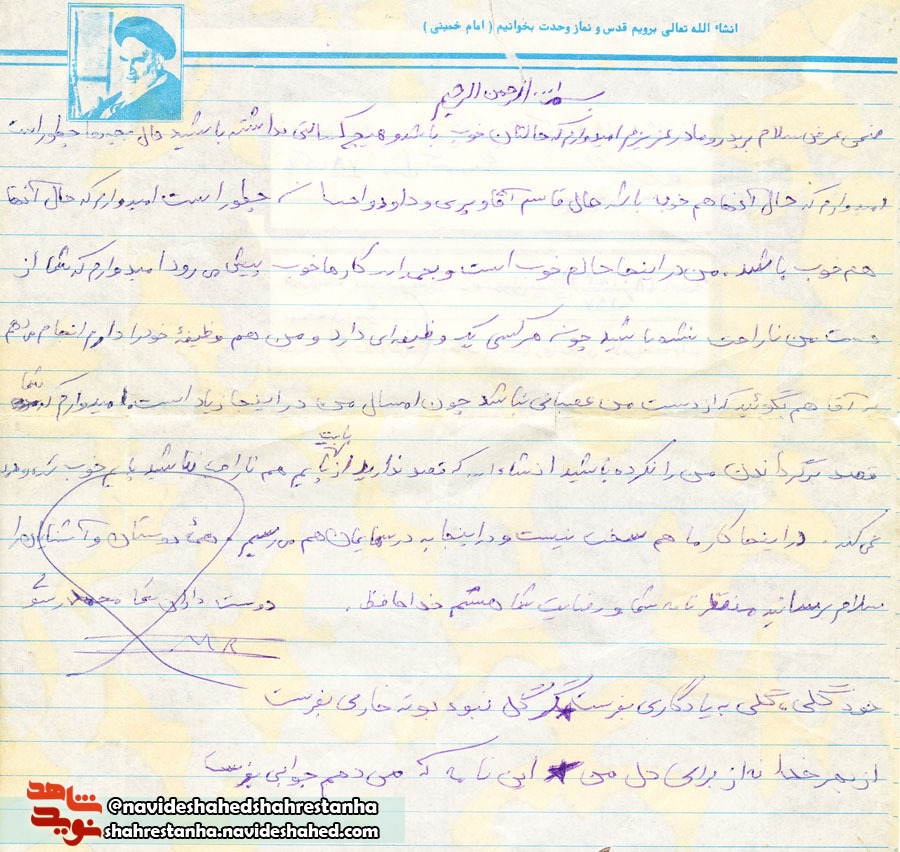 انشاء الله تعالی برویم قدس و نماز وحدت بخوانیم ( امام خمینی )
بسم الله الرحمن الرحیم
ضمن عرض سلام بر پدر و مادر عزیزم امیدوارم که حالتان خوب باشد و هیچ کسالتی نداشته باشید حال چطور است
امیدوارم که حال آنها هم خوب باشد حال قاسم آقا و پری و داود و احسان چطور است امیدوارم که حال آنها
هم خوب باشد. من در اینجا حالم خوب است و بحمدالله کارها خوب پیش می رود امیدوارم که شما از
دست من ناراحت نشده باشید چون هر کسی یک وظیفه‌ای دارد و من هم وظیفهٔ خود را دارم انجام می‌دهم
به آقا هم بگوئید که از دست من عصبانی نباشد چون امسال من در اینجا زیاد است. امیدوارم که شما
قصد برگرداندن من را نکرده باشید انشاءالله که قصد ندارید از بابت پایم هم ناراحت نباشید پایم خوب شده و درد
نمی کند. در اینجا کار ما هم سخت نیست و در اینجا به درسهایمان هم می رسیم. همهٔ دوستان و آشنایان را
سلام برسانید منتظر نامه شما و رضایت شما هستم خداحافظ. دوست دارتان شما محمد
M R
خود گلی، گلی به یادگاری بفرست گر گل نبود بوته خاری بفرست
از بهر خدا نه از برای دل من این نامه که می دهم جوابی بفرست
شاهد
نوید
@navideshahedshahrestanha
shahrestanha.navideshahed.com